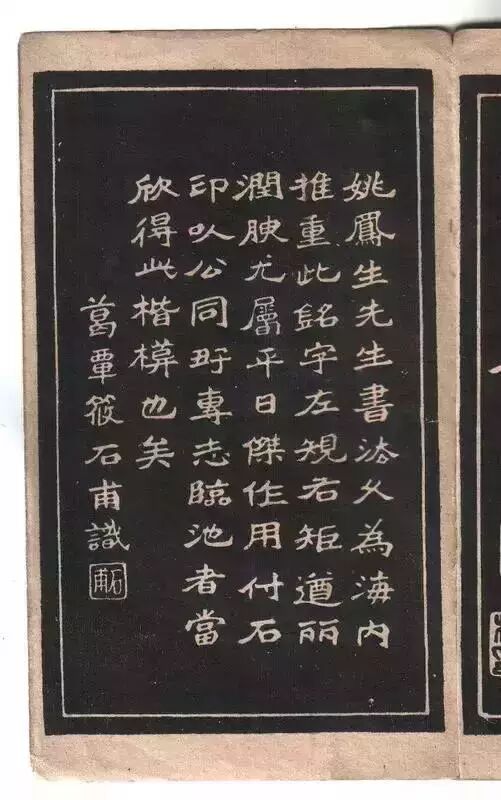 姚鳳生先生書法久為海内
推重此銘字左規右矩遒丽
潤腴尤屬平日傑作用付石
印㕥公同好專志臨池者當
欣得此楷模也矣
葛覃筱石甫識
石甫